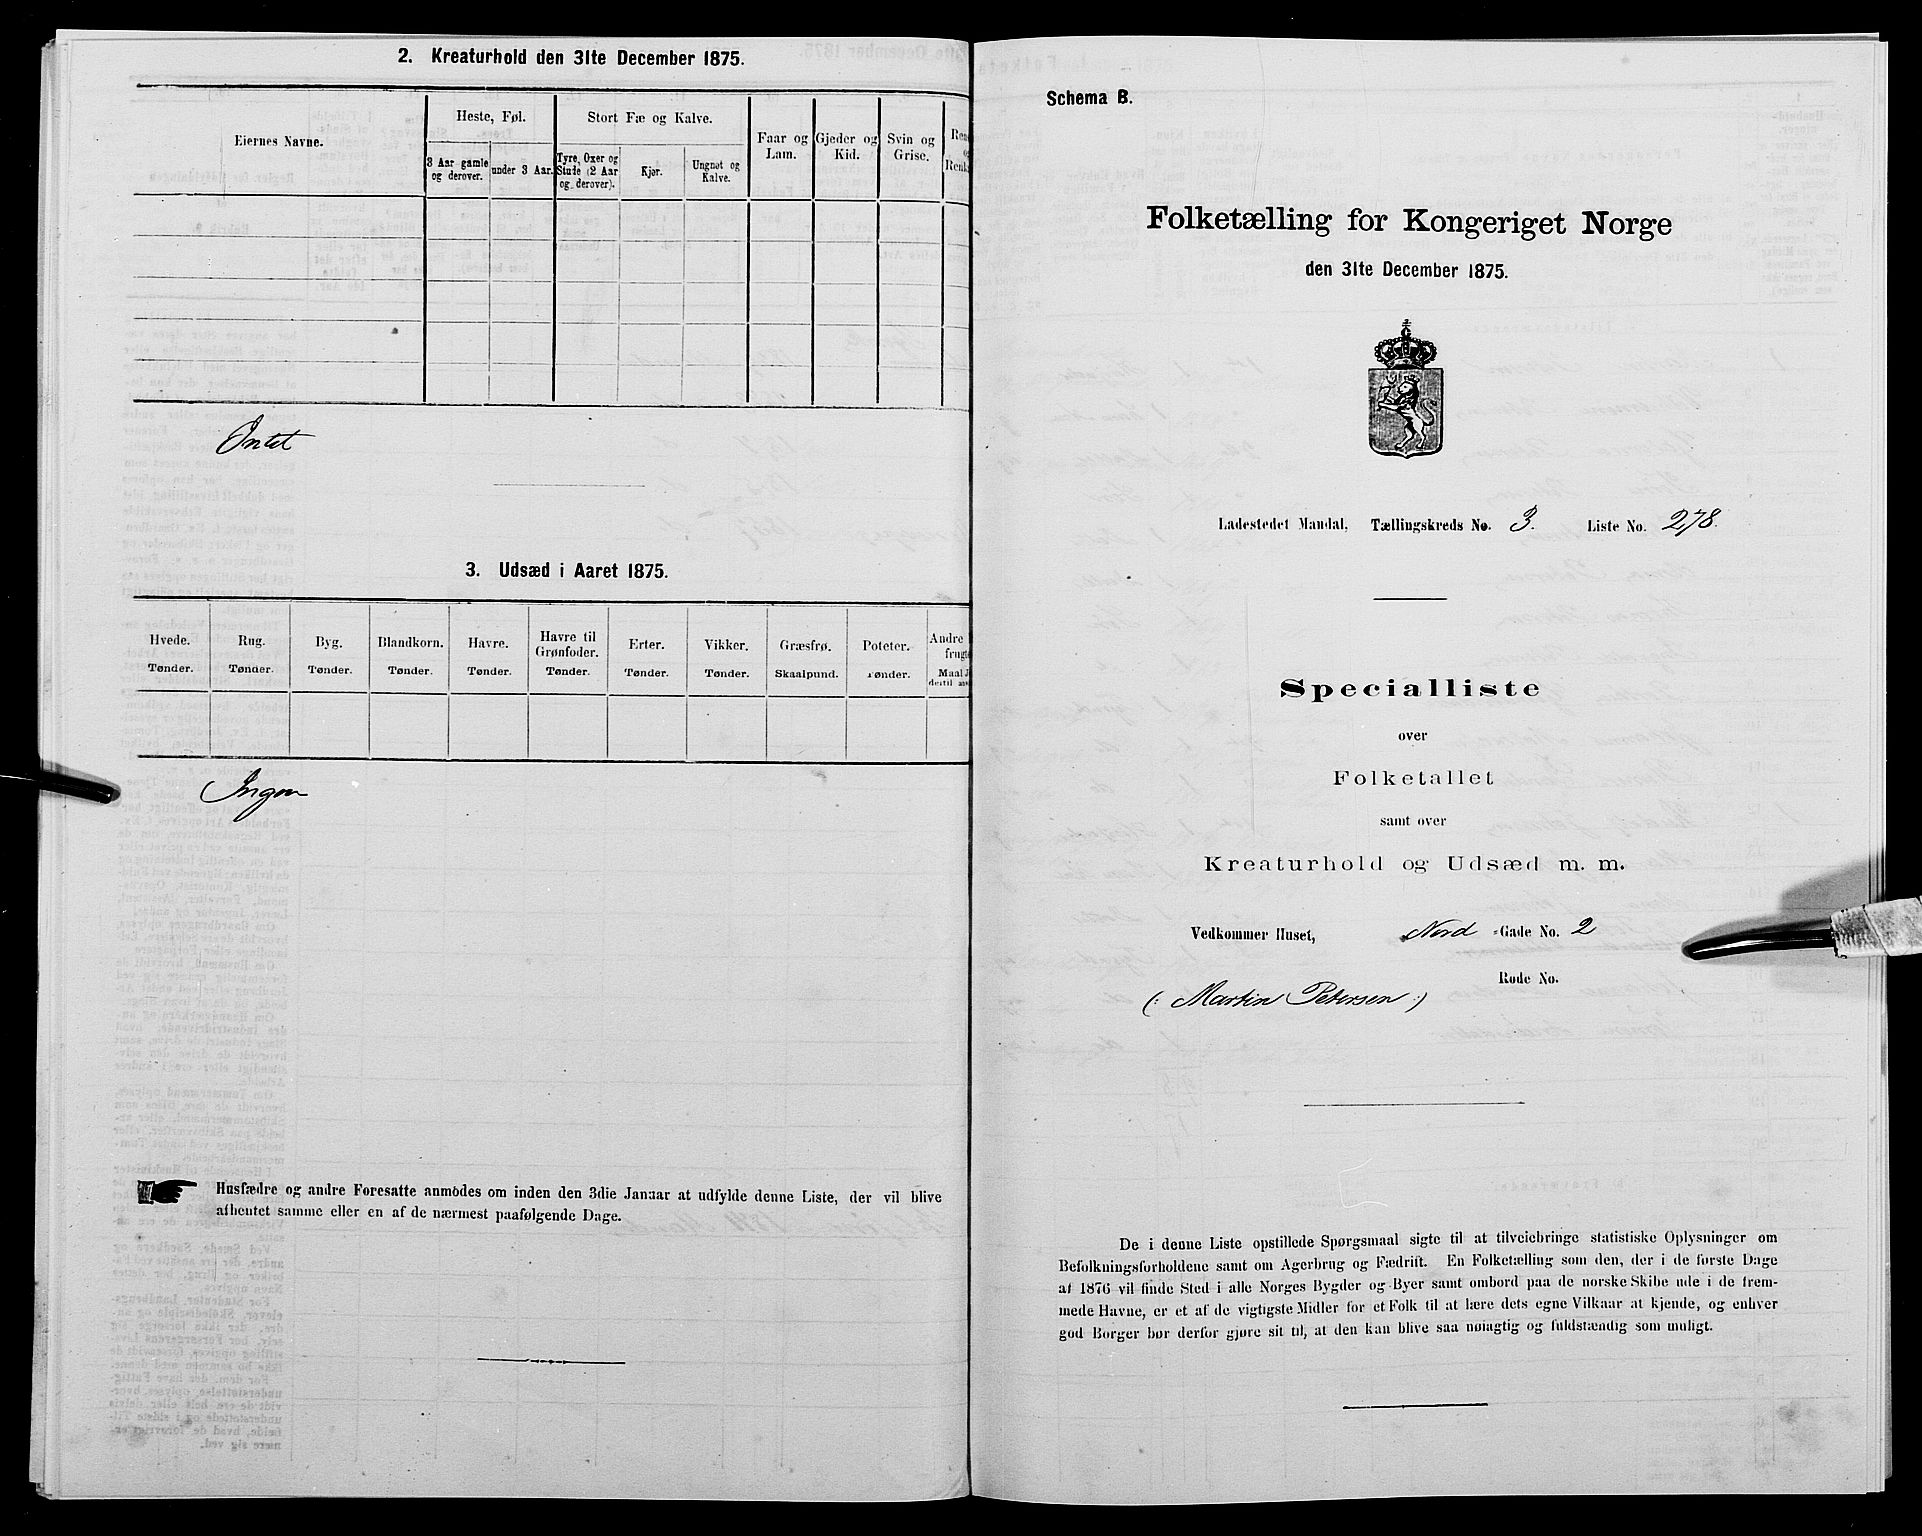 2. Kreaturhold den 31te December 1875.
Eiernes Navne.
Heste, Føl.
3 Aar gamle og derover.
under 3 Aar.
Stort Fæ og Kalve.
Tyre, Oxer og Stude (2 Aar og derover).
Kjør.
Ungnøt og Kalve.
Faar og Lam.
Gjeder og Kid.
Svin og Grise.
Intet
3. Udsæd i Aaret 1875.
Hvede. Tønder.
Rug. Tønder.
Byg. Tønder.
Blandkorn. Tønder.
Havre. Tønder.
Havre til Grønfoder. Tønder.
Erter. Tønder.
Vikker. Tønder.
Græsfrø. Skaalpund.
Poteter. Tønder.
Andre
Ingen
Husfædre og andre Foresatte anmodes om inden den 3die Januar at udfylde denne Liste, der vil blive
afhentet samme eller en af de nærmest paafølgende Dage.
Schema B.
Folketælling for Kongeriget Norge
den 31te December 1875.
Ladestedet Mandal, Tællingskreds No. 3. Liste No. 278.
Specialliste
over
Folketallet
samt over
Kreaturhold og Udsæd m. m.
Vedkommer Huset, Nord -Gade No. 2
Rode No.
(: Martin Petersen :)
De i denne Liste opstillede Spørgsmaal sigte til at tilveiebringe statistiske Oplysninger om
Befolkningsforholdene samt om Agerbrug og Fædrift. En Folketælling som den, der i de første Dage
af 1876 vil finde Sted i alle Norges Bygder og Byer samt ombord paa de norske Skibe ude i de frem-
mede Havne, er et af de vigtigste Midler for et Folk til at lære dets egne Vilkaar at kjende, og enhver
god Borger bør derfor gjøre sit til, at den kan blive saa nøiagtig og fuldstændig som muligt.